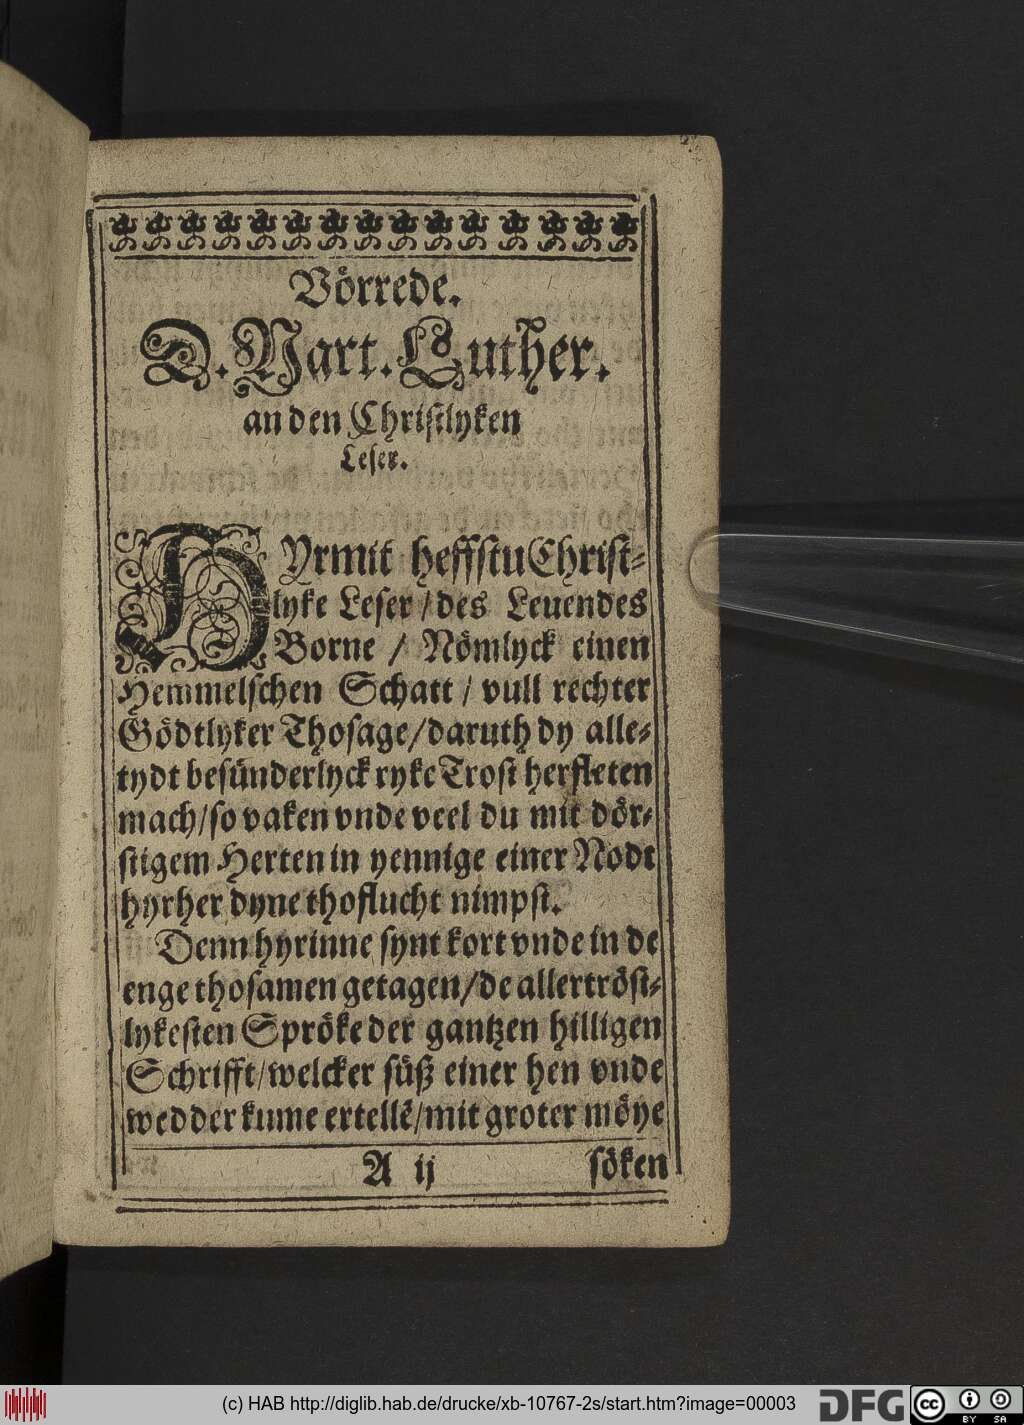 Vörrede.
D. Mart. Luther.
an den Christlyken
Leser.
HYrmit heffstu Christ-
lyke Leser / des Leuendes
Borne / Nömlyck einen
Hemmelschen Schatt / vull rechter
Gödtlyker Thosage / daruth dy alle-
tydt besünderlyck ryke Trost herfleten
mach / so vaken vnde veel du mit dör-
stigem Herten in yennige einer Nodt
hyrher dyne thoflucht nimpst.
Denn hyrinne synt kort vnde in de
enge thosamen getagen / de allertröst-
lykesten Spröke der gantzen hilligen
Schrifft / welcker süß einer hen vnde
wedder kume ertellē / mit groter möye
A ij söken
(c) HAB http://diglib.hab.de/drucke/xb-10767-2s/start.htm?image=00003
DFG
cc BY SA